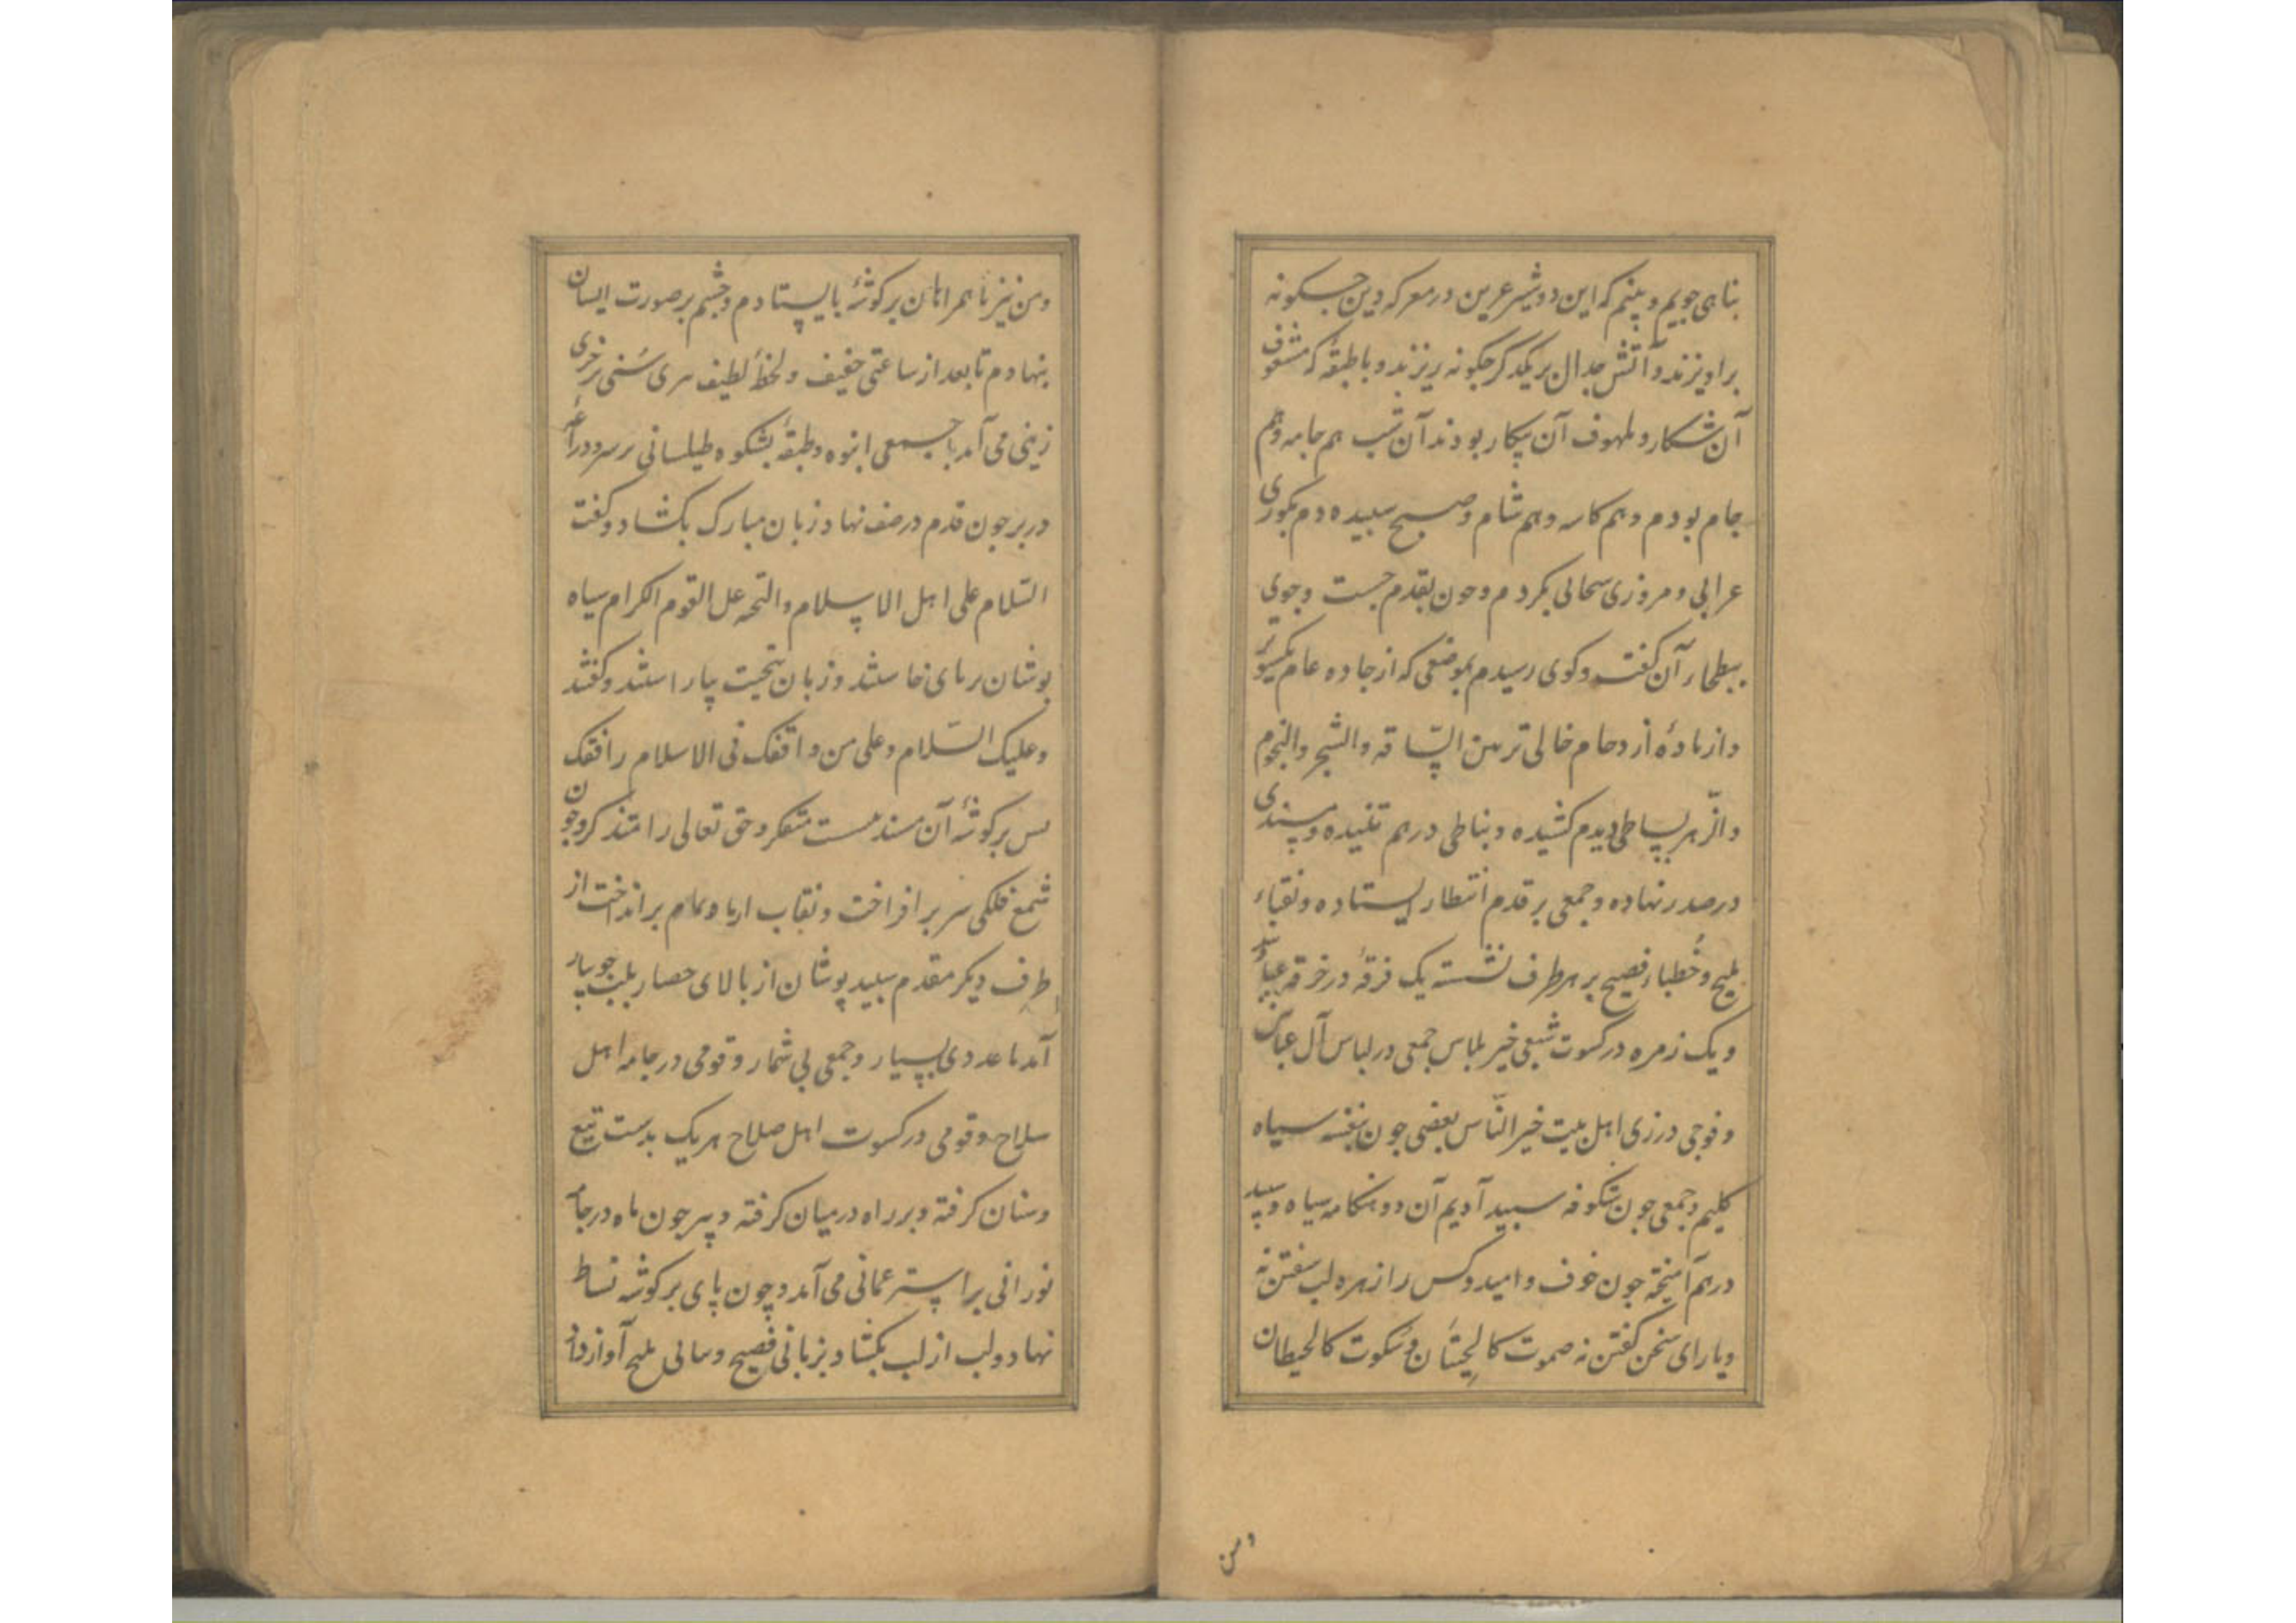 بناهی جویم و بینم که این دو شیر عرین در معرکه دین چسکونه
براویزند و آتش جدال بر یکدگر چکونه ریزند و با طبقهٔ که مشغوف
آن شکار و ملهوف آن پیکار بودند آن شب هم جامه و هم
جام بودم و هم کاسه و هم شام و صبح سبیده دم بکوری
غرابی و مروزی سحابی بکردم و چون بقدم جست و جوی
ببطحار آن کفت و کوی رسیدم بموضعی که از جاده عام یکسو
و از مادهٔ ازدحام خالی تر بین الساقه والشجر والنجوم
والزهر بساطی دیدم کشیده و بناطی درهم تنیده و مسندی
در صدر نهاده و جمعی بر قدم انتظار ایستاده و نقباء
ملیح و خُطباء فصیح بر هر طرف نشسته یک فرقهٔ در خرقه
و یک زمره در کسوت شیعی خیر بلباس جمعی در لباس آل عباس
و فوجی در زی اهل بیت خیر النّاس بعضی چون بنفشه سیاه
کلیم و جمعی چون شکوفه سبید آدیم آن دو هنکامه سیاه و سبید
درهم آمیخته چون خوف و امید و کس را زهره لب سفتن نه
و یارای سخن کفتن نه صموت کالحیتان و سکوت کالحیطان
و من
و من نیز با همراهان بر کوشهٔ بایستادم و چشم بر صورت ایشان
بنهادم تا بعد از ساعتی خفیف و لحظهٔ لطیف سری سُنی
زینی می آمد با جمعی انبوه و طبقهٔ بشکوه طیلسانی بر سر و دراعهٔ
در بر چون قدم در صف نهاد زبان مبارک بکشاد و کفت
السّلام علی اهل الاسلام والتحیه علی القوم الکرام سیاه
بوشان برپای خاستند و زبان بتحیت بیاراستند و کفتند
وعلیک السّلام وعلی من واقفک فی الاسلام رافقک
بس بر کوشهٔ آن مسند متفکر و حق تعالی را متذکر و چون
شمع فلکی سر بر افراخت و نقاب از ماه تمام بر انداخت از
طرف دیکر مقدم سبید پوشان از بالای حصار بلب جویبار
آمد با عددی بسیار و جمعی بی شمار و قومی در جامه اهل
سلاح و قومی در کسوت اهل صلاح هر یک بدست تیغ
و سنان کرفته و بر راه در میان کرفته و پیر چون ماه در جامهٔ
نورانی بر استر عمانی می آمد و چون پای بر کوشه بساط
نهاد و لب از لب بکشاد و بزبانی فصیح و بیانی ملیح آواز داد